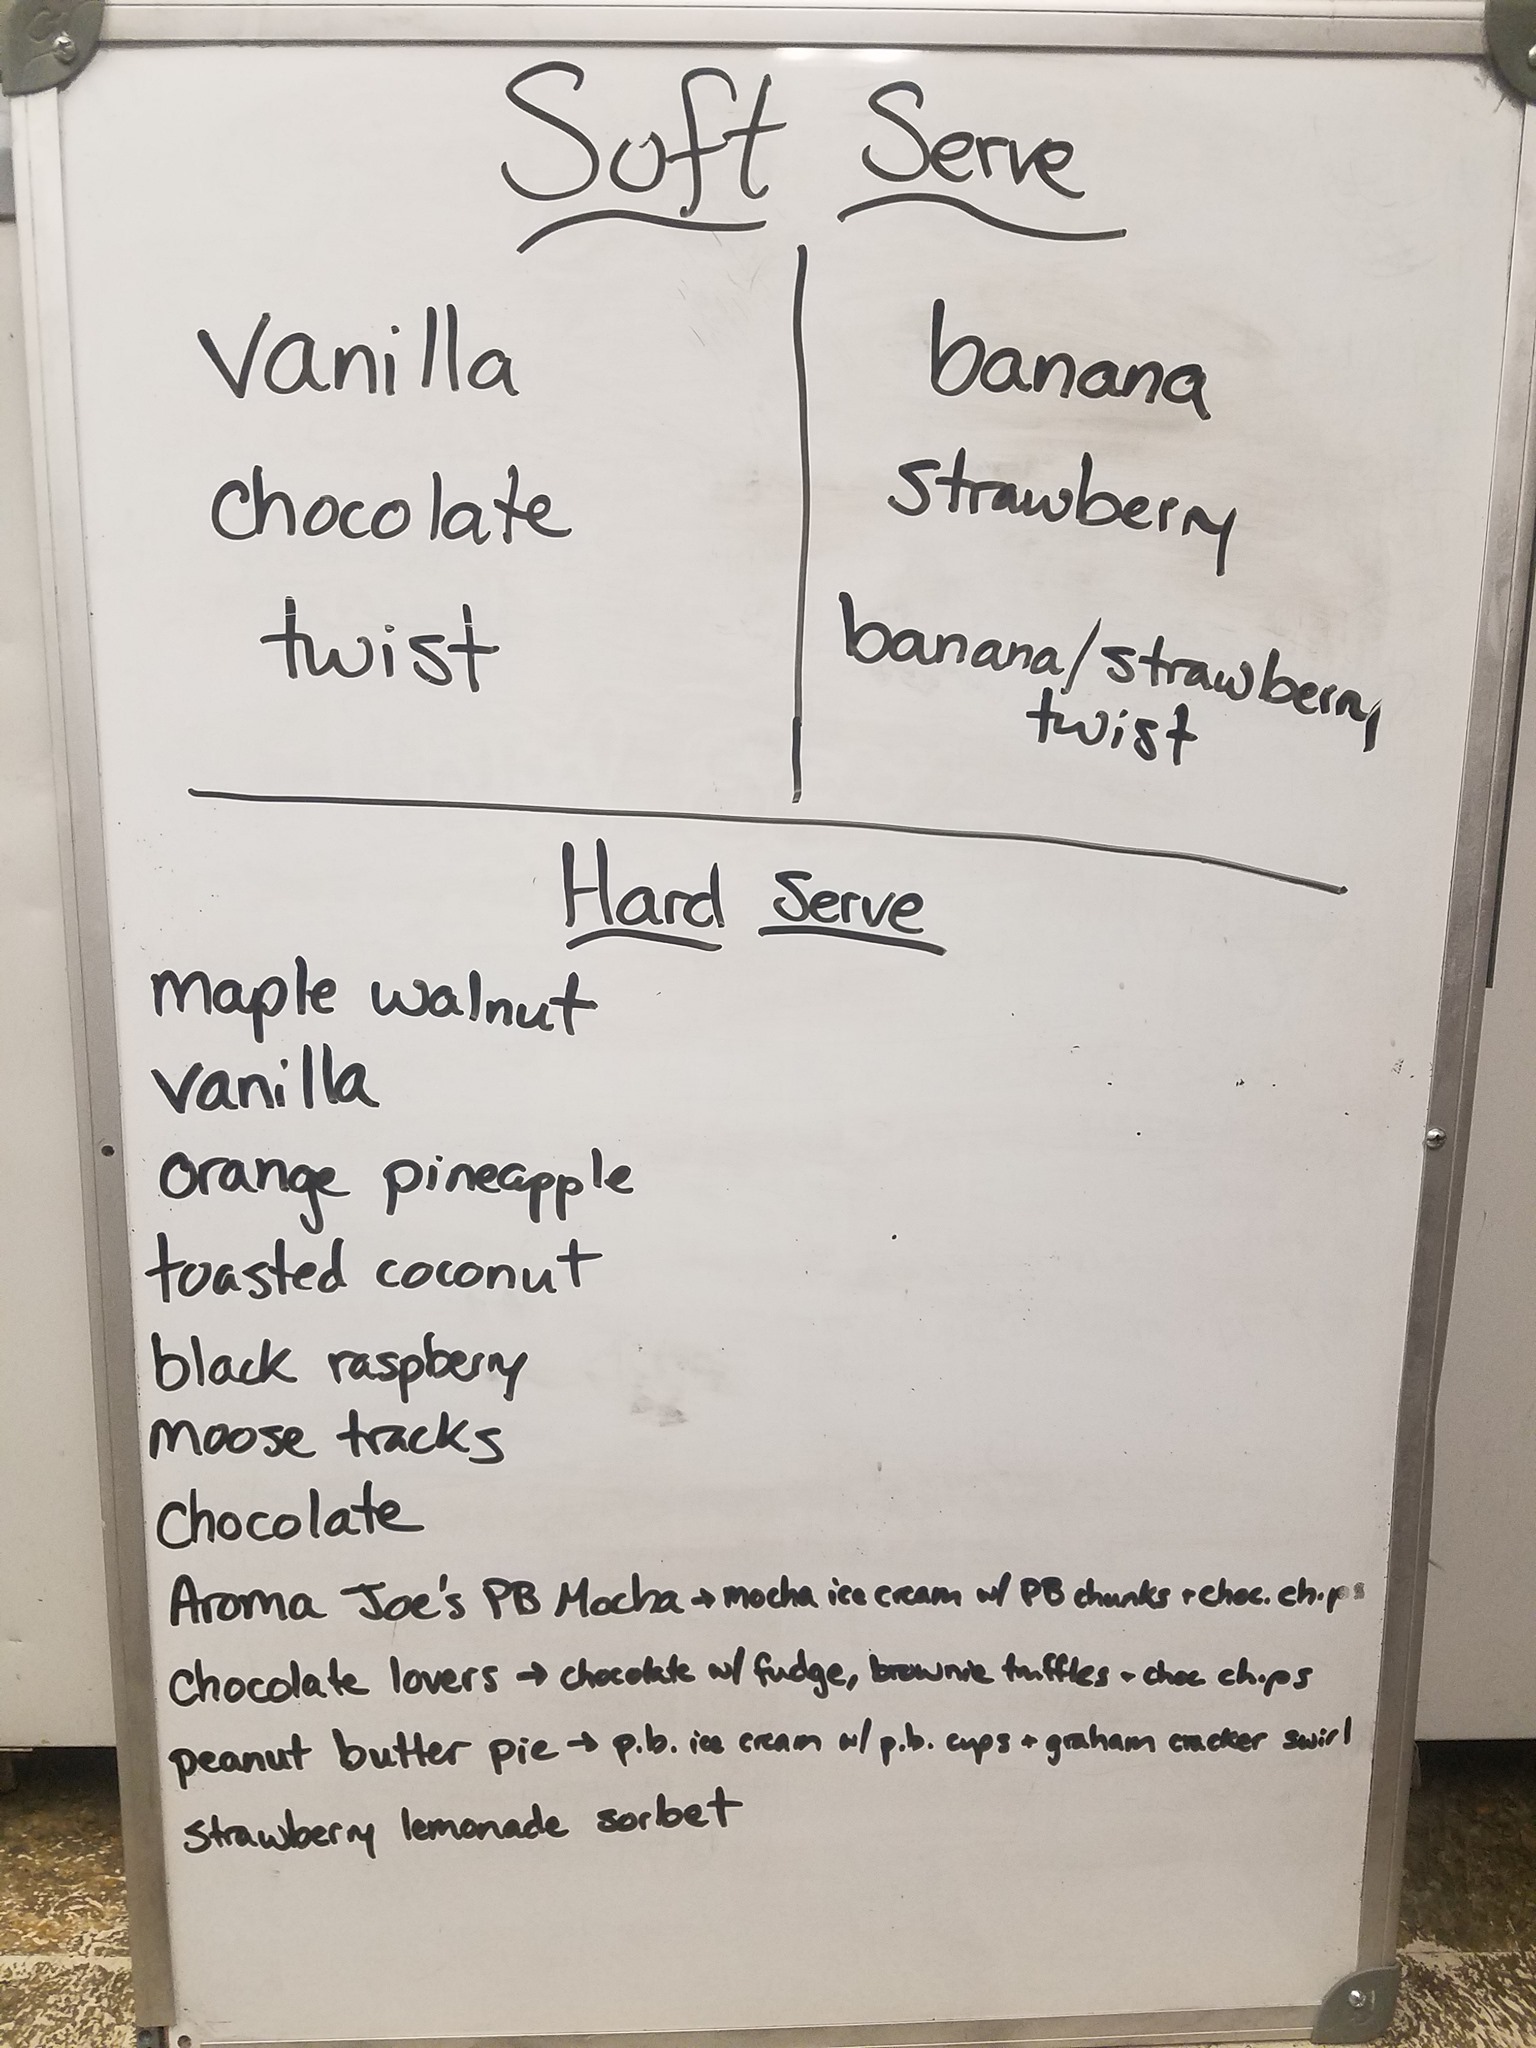 Soft Serve
Vanilla
chocolate
twist
banana
strawberry
banana/strawberry
twist
Hard Serve
maple walnut
vanilla
orange pineapple
toasted coconut
black raspberry
moose tracks
chocolate
Aroma Joe's PB Mocha → mocha ice cream w/ PB chunks + choc. chips
chocolate lovers → chocolate w/ fudge, brownie truffles + choc chips
peanut butter pie → p.b. ice cream w/ p.b. cups + graham cracker swirl
strawberry lemonade sorbet